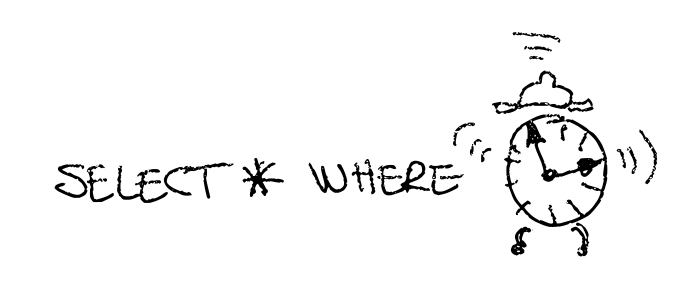 SELECT * WHERE